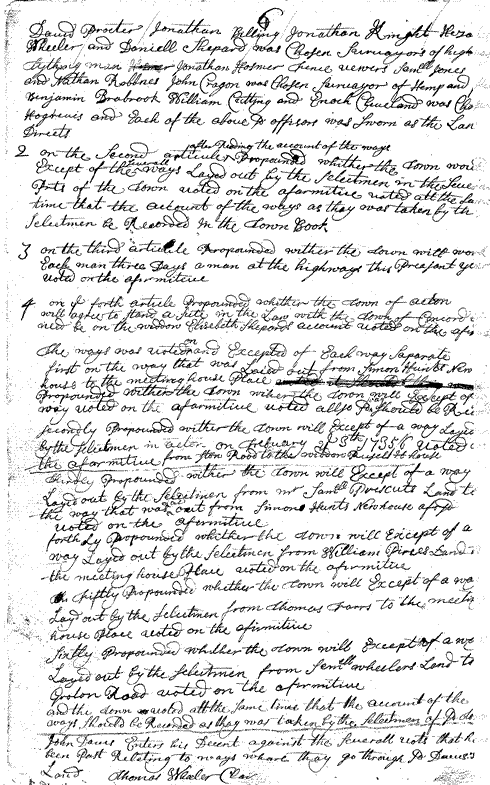 6
David Procter Jonathan Billing Jonathan Knight Heza
Wheeler and Daniell Shepard was Chosen Survayors of high
man Jonathan Hosmer fence vewers Samll Jones
and Nathan Robbnes John Cragon was Chosen Survaeyor of Hemp and
Benjamin Brabrook William Cutting and Enoch Cleveland was Cho
Hogreivs and Each of the above sd offisors was Sworn as the Law
Directs
after Reding the account of the ways
2 on the Second article Propounded whether the town woul
Except of the Severall ways Layed out by the Selectmen in the Seve
Parts of the town voted on the afarmitive voted att the Sam
time that the account of the ways as they was taken by the
Selectmen be Recorded in the Town Book
3 on the third article Propounded wither the town will work
Each man three Days a man at the highways this Preasant ye
voted on the afirmitive
4 on ye forth article Propounded whether the town of acton
will agree to stand a Sute in the Law with the town of Concord
on the widdow Elisebeth Shepards account voted on the afir
The ways was voted on and Excepted of Each way Saparate
first on the way that was Layed out from Simon Hunts New
house to the meeting house Place
Propounded wither the town will Except of
way voted on the afarmitive voted allso Pr Should be Re
Secondly Propounded wither the town will Except of a way Layed
by the Selectmen in acton on Febuary 23th 1735/6 voted
the afarmitive from Road to the widdow house
thirdly Propounded wither the town will Except of a way
Layd out by the Selectmen from mr Samll Prescuts Land to
the way that was Laid out from Simons Hunts New house afors
voted on the afirmitive
forthly Propounded whether the town will Except of a
way Layed out by the Selectmen from William Land
the meeting house Place voted on the afirmitive
fiftly Propounded whether the town will Except of a way
Layd out by the Selectmen from Thomas Farrs to the meetin
house Place voted on the afirmitive
Sixtly Propounded whether the town will Except of a we
Layed out by the Selectmen from Samll wheelers Land to
Groton Road voted on the afirmitive
and the town voted att the Same time that the account of the
ways Should be Recorded as they was taken by the Selectmen of sd
John Davis Enters his Decent against the Severall vots that h
been Past Relating to ways where they go through sd Daviss
Land Thomas Wheeler Clar